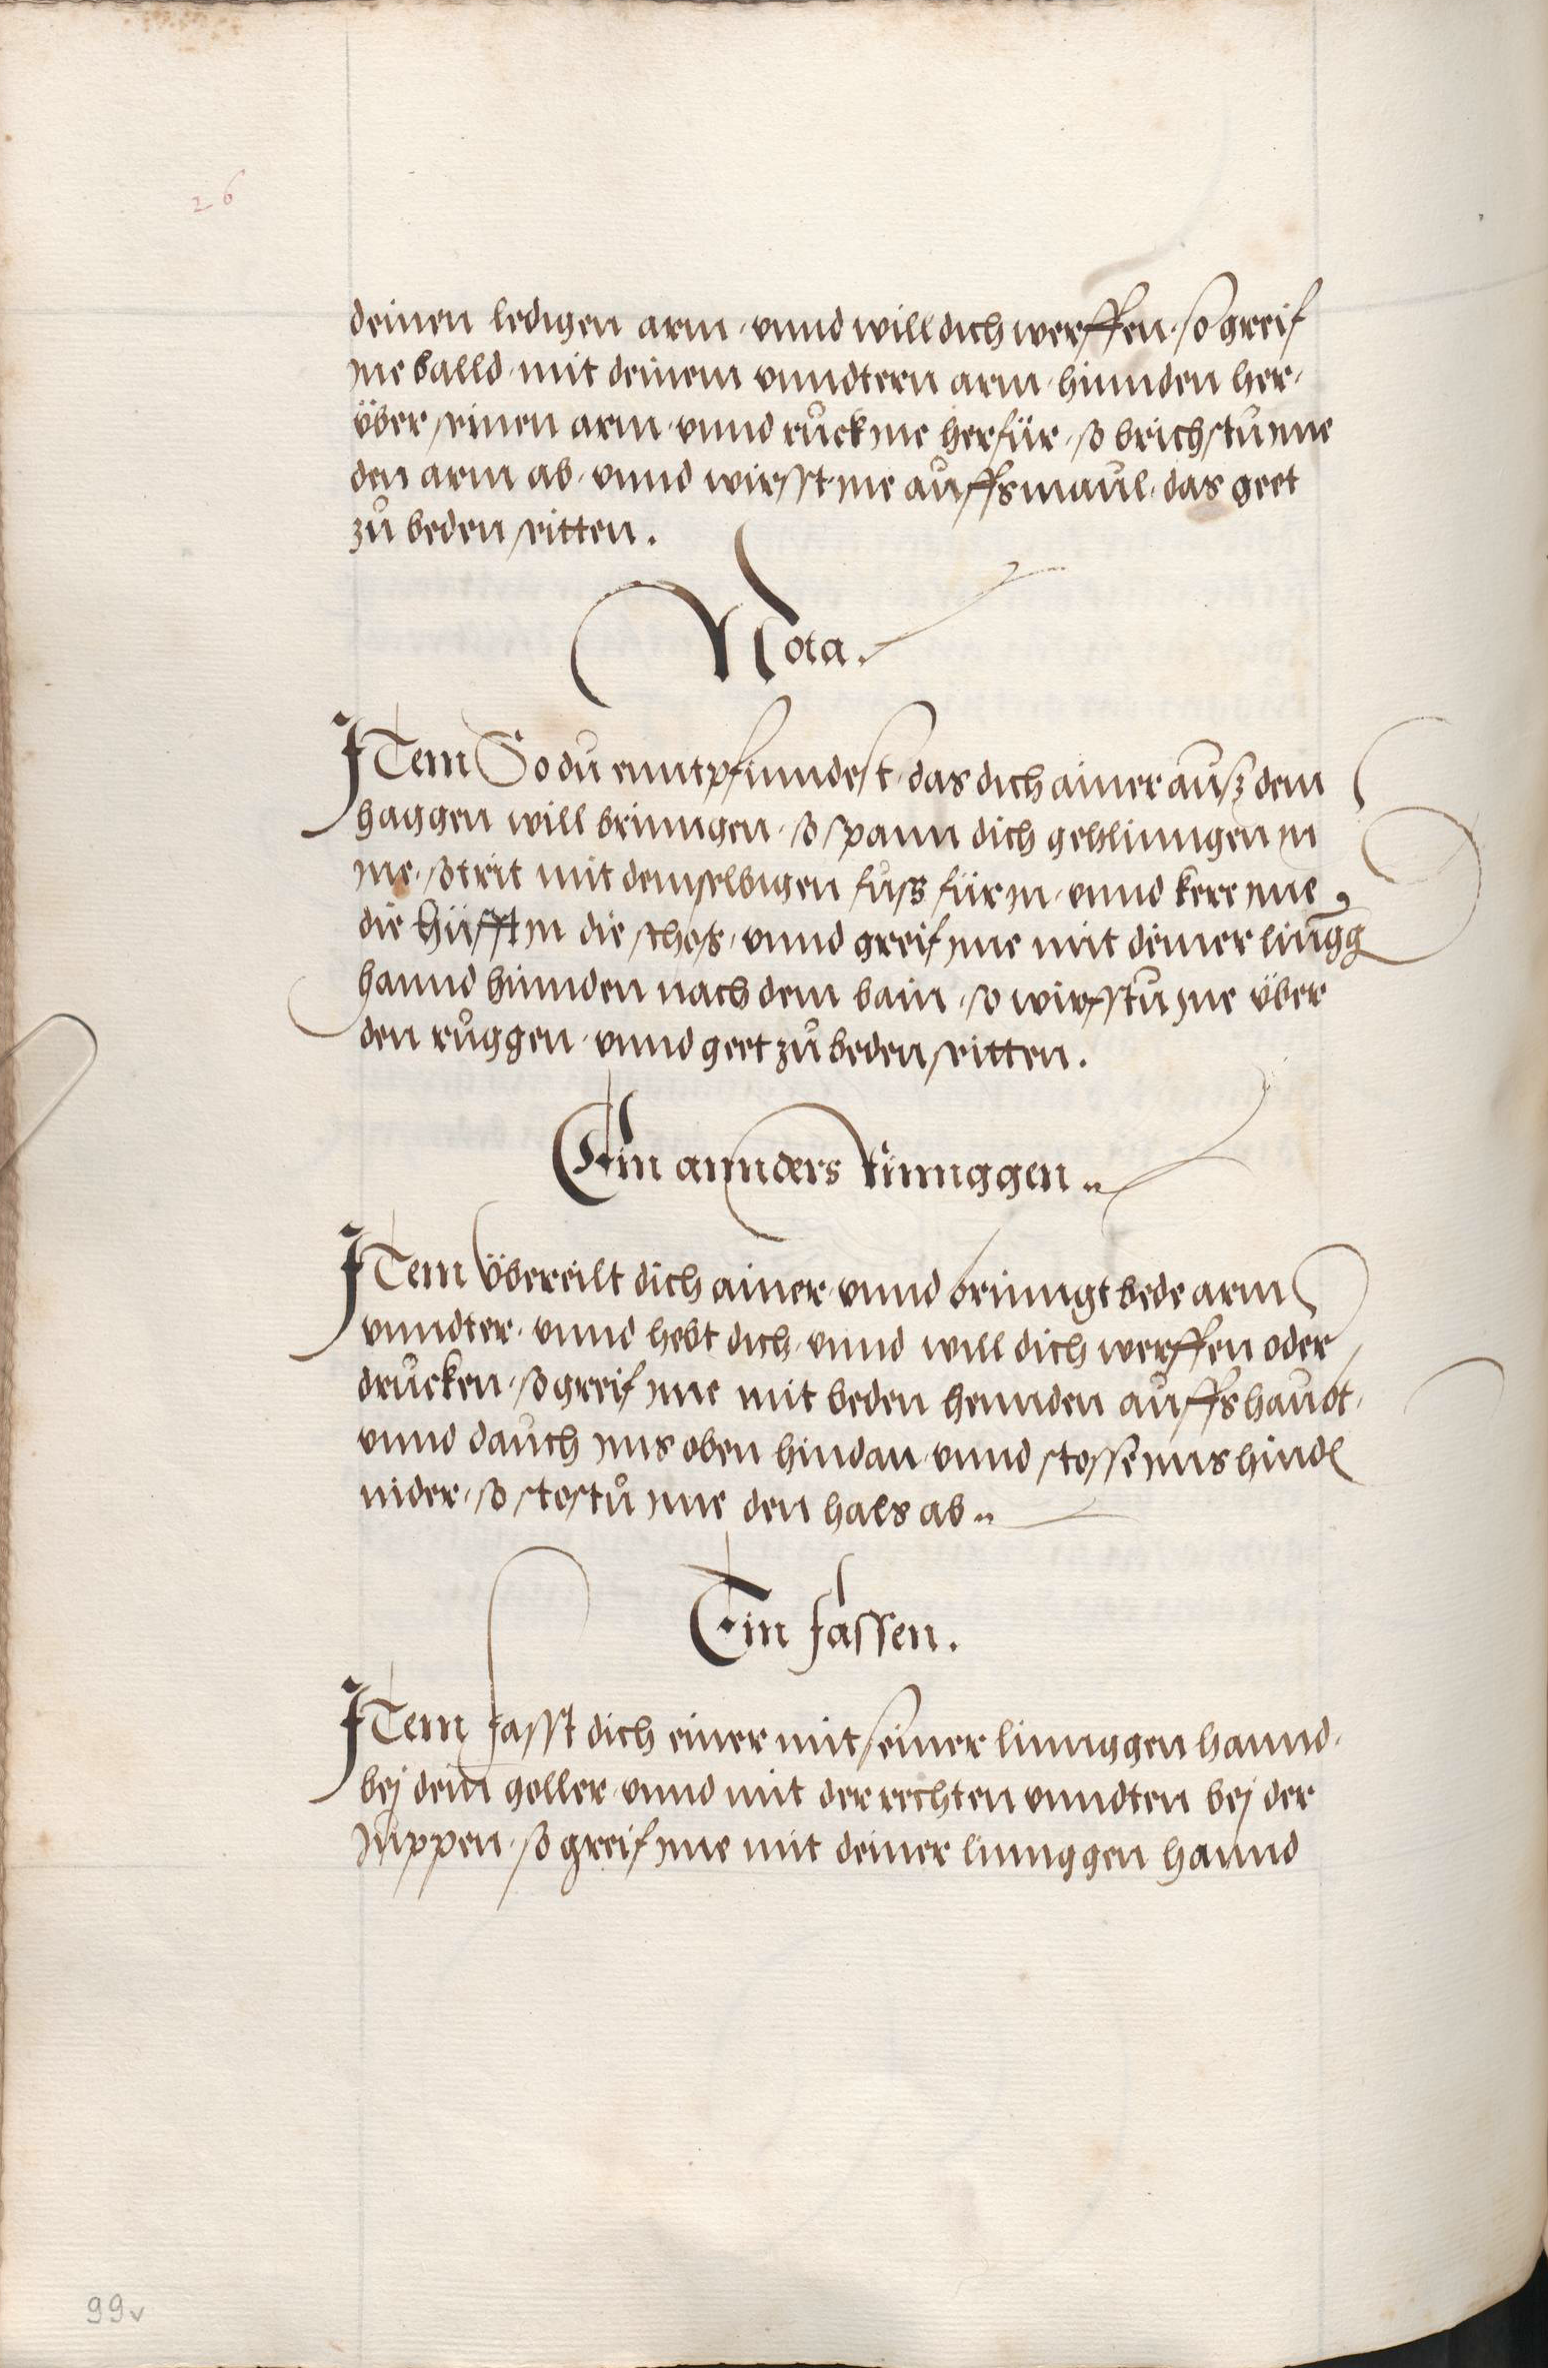 26
deinen ledigen arm, vnnd will dich werffen, so greif
jme balld, mit deinem vnndtern arm, hinnden her,
über seinen arm, vnnd růck jne herfür, so brichstu jme
den arm ab, vnnd wirffst jne auffs maul, das geet
zů beden seitten.
Nota.
JTem So du enntpfinndest, das dich ainer auß dem
haggen will bringen, so spann dich gehlinngen jn
jne, so trit mit demselbigen fůss für jn, vnnd kere jme
die hüfft jn die schos, vnnd greif jme mit deiner lingg
hannd hinnden nach dem bain, so wirfstu jne über
den růggen, vnnd geet zů beden seitten.
Ein annders ringgen..
JTem übereilt dich ainer, vnnd brinngt bede arm
vnndter, vnnd hebt dich, vnnd will dich werffen oder
drucken, so greif jme mit beden hennden auffs haubt,
vnnd dauch jms oben hindan, vnnd stosse jms hindn
nider, so stostů jme den hals ab..
Ein fassen.
JTem fasst dich einer mit seiner linnggen hannd,
bej dem goller, vnnd mit der rechten vnndten bej der
Juppen, so greif jme mit deiner linnggen hannd
99v